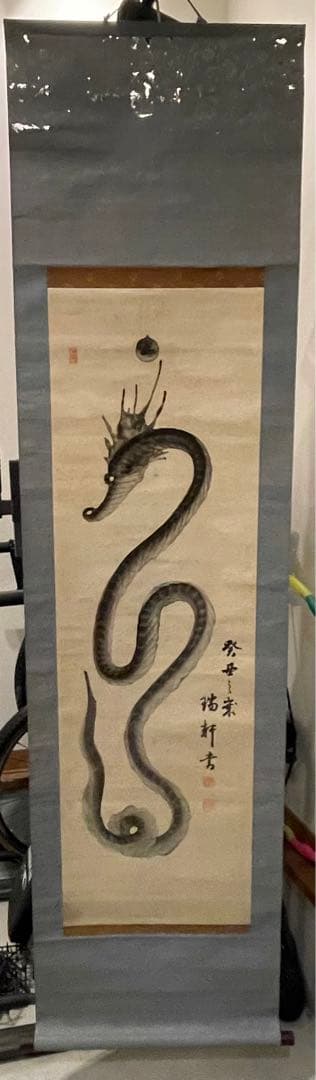 癸丑之歳
瑞軒書